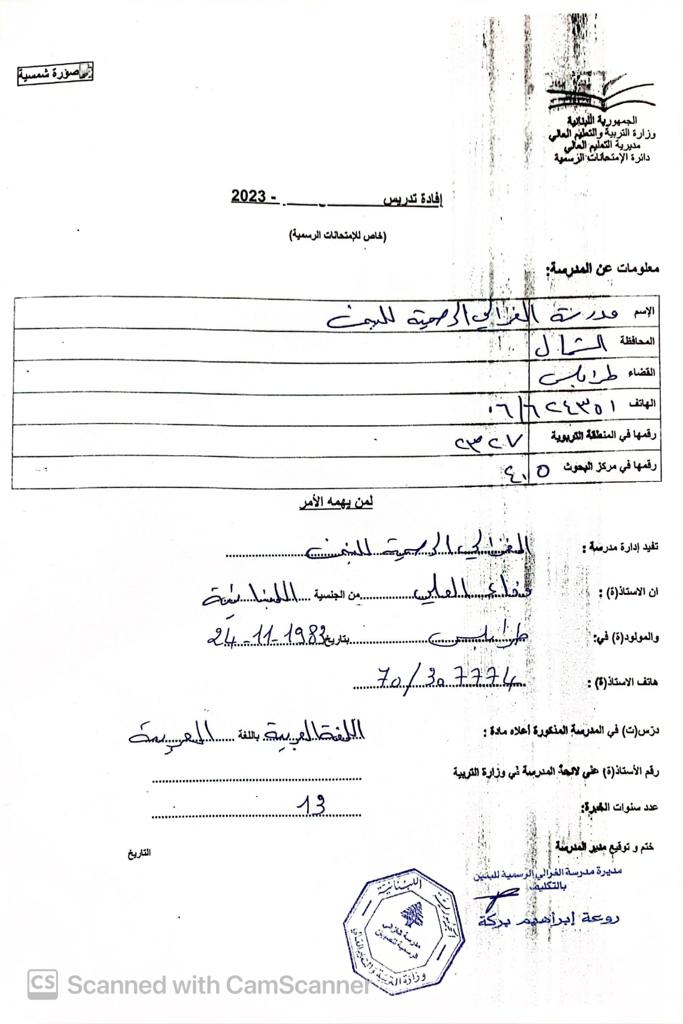 صورة شمسية
الجمهورية اللبنانية
وزارة التربية والتعليم العالي
مديرية التعليم العالي
دائرة الإمتحانات الرسمية
إفادة تدريس ـــــــ - ـــــــ - 2023
(خاص للإمتحانات الرسمية)
معلومات عن المدرسة:
الإسم مدرسة الغزالي الرسمية للبنين
المحافظة الشمال
القضاء طرابلس
الهاتف ٠٦/٦٢٤٣٥١
رقمها في المنطقة التربوية ٢٣٢٧
رقمها في مركز البحوث ٤٠٥
لمن يهمه الأمر
تفيد إدارة مدرسة : الغزالي الرسمية للبنين
ان الاستاذ(ة) : العلي من الجنسية اللبنانية
والمولود(ة) في: طرابلس بتاريخ 24-11-1983
هاتف الاستاذ(ة) : 70/307774
درّس(ت) في المدرسة المذكورة أعلاه مادة : اللغة العربية باللغة العربية
رقم الأستاذ(ة) على لائحة المدرسة في وزارة التربية
عدد سنوات الخبرة: 13
ختم و توقيع مدير المدرسة
التاريخ
مديرة مدرسة الغزالي الرسمية للبنين
بالتكليف
روعة إبراهيم بركة
الجمهورية اللبنانية
مدرسة الغزالي
الرسمية للبنين
وزارة التربية والتعليم العالي
CS Scanned with CamScanner